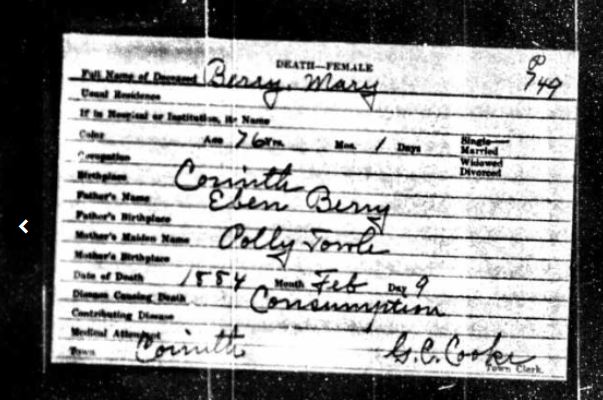 DEATH—FEMALE
P 749
Full Name of Deceased Berry, Mary
Usual Residence
If in Hospital or Institution, its Name
Color Age 76 Yrs. Mos. 1 Days
Single
Married
Widowed
Divorced
Occupation
Birthplace Corinth
Father's Name Eben Berry
Father's Birthplace
Mother's Maiden Name Polly Towle
Mother's Birthplace
Date of Death 1884 Month Feb Day 9
Disease Causing Death Consumption
Contributing Disease
Medical Attendant
Town Corinth G. C. Cooke
Town Clerk.